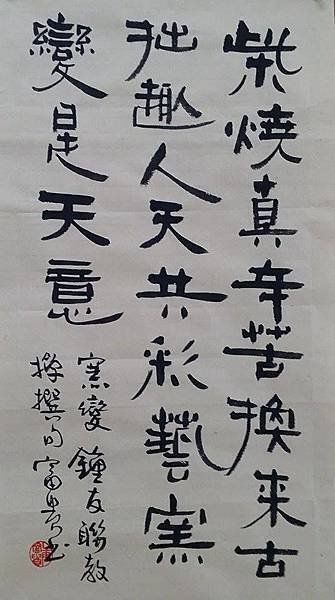 柴燒真辛苦換来古
拙趣人天共彩藝窯
變是天意
窯變 鍾友聯教
撰句富